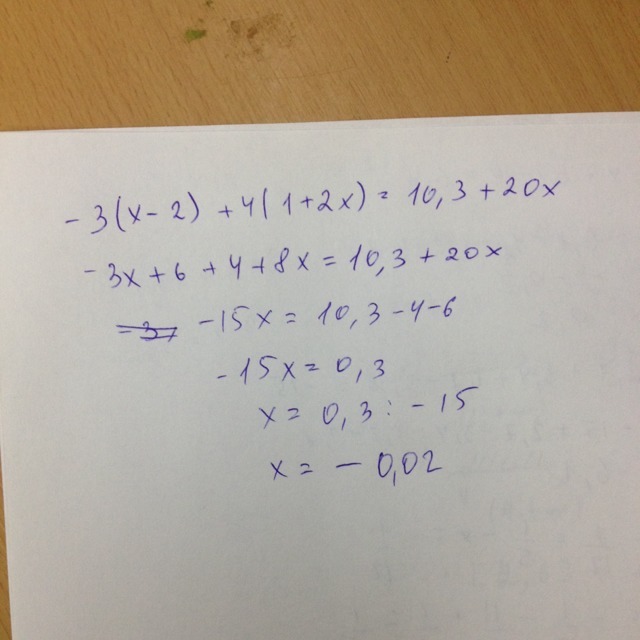 -3(x-2) +4(1+2x) = 10,3+20x
-3x+6+4+8x=10,3+20x
-15x= 10,3-4-6
-15x=0,3
x= 0,3: -15
x= -0,02